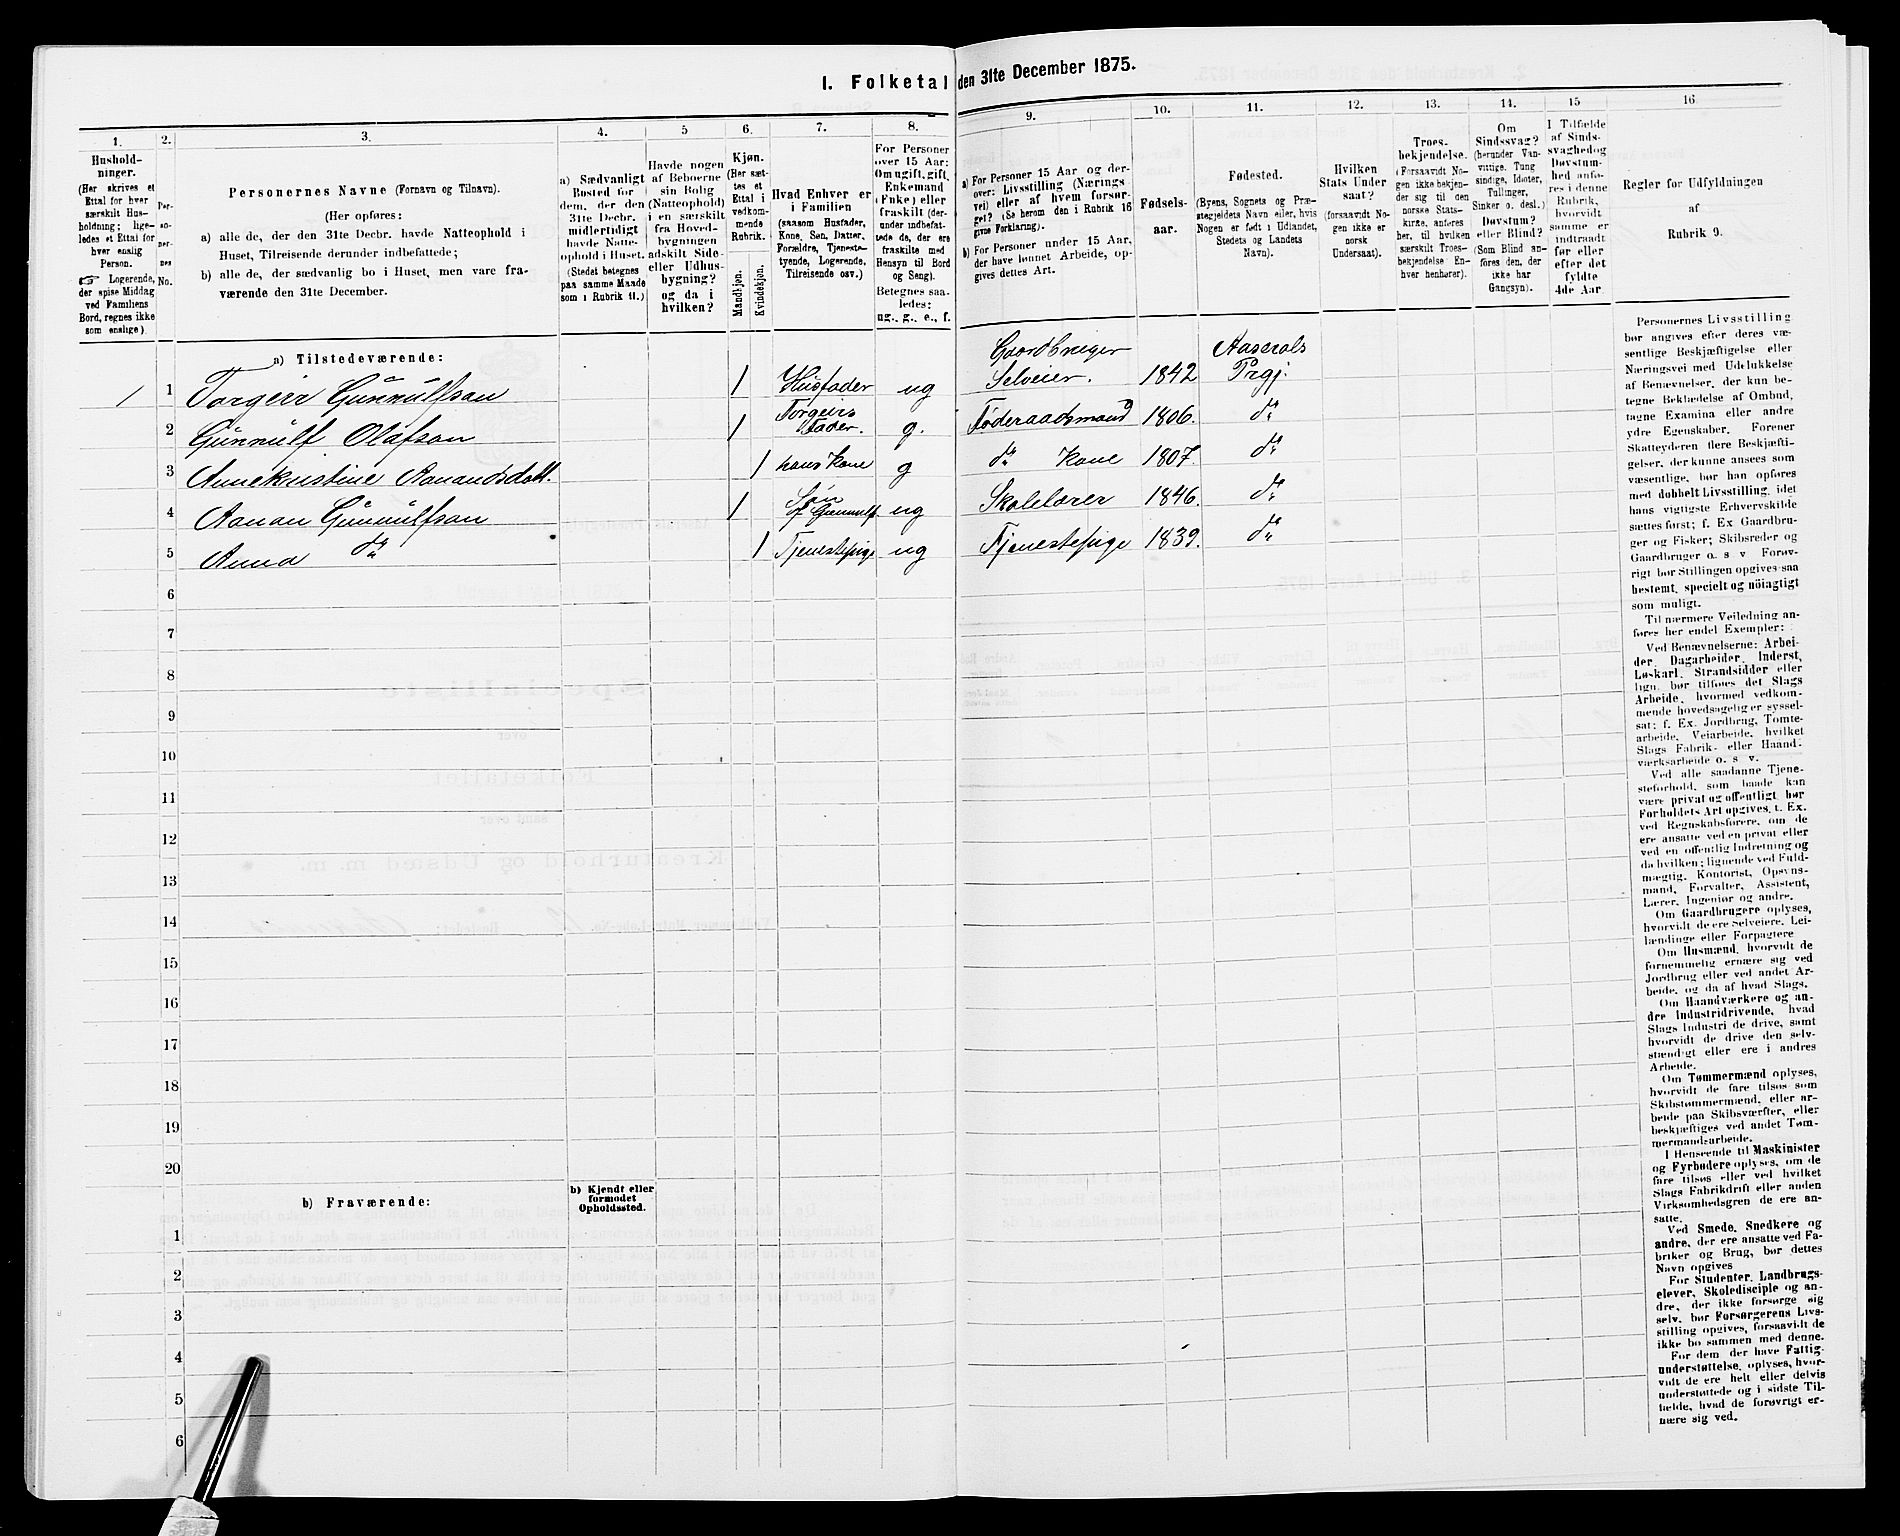 I. Folketal den 31te December 1875.
1.
Hushold-
ninger.
(Her skrives et
Ettal for hver
særskilt Hus-
holdning; lige-
ledes et Ettal for
hver enslig
Person.
☞ Logerende,
der spise Middag
ved Familiens
Bord, regnes ikke
som enslige).
2.
Per-
so-
ner-
nes
No.
3.
Personernes Navne (Fornavn og Tilnavn).
(Her opføres:
a) alle de, der den 31te Decbr. havde Natteophold i
Huset, Tilreisende derunder indbefattede;
b) alle de, der sædvanlig bo i Huset, men vare fra-
værende den 31te December.
4.
a) Sædvanligt
Bosted for
dem, der den
31te Decbr.
midlertidigt
havde Natte-
ophold i Huset.
(Stedet betegnes
paa samme Maade
som i Rubrik 11.)
5
Havde nogen
af Beboerne
sin Bolig
(Natteophold)
i en særskilt
fra Hoved-
bygningen
adskilt Side-
eller Udhus-
bygning?
og da i
hvilken?
6.
Kjøn.
(Her sæt-
tes et
Ettal i
vedkom-
mende
Rubrik.
Mandkjøn.
Kvindekjøn.
7.
Hvad Enhver er
i Familien
(saasom Husfader,
Kone, Søn, Datter,
Forældre, Tjeneste-
tyende, Logerende,
Tilreisende osv.)
8.
For Personer
over 15 Aar:
Om ugift, gift,
Enkemand
(Enke) eller
fraskilt (der-
under indbefat-
tede de, der ere
fraskilte med
Hensyn til Bord
og Seng).
Betegnes saa-
ledes:
ug., g., e., f.
9.
a) For Personer 15 Aar og der-
over: Livsstilling (Nærings-
vei) eller af hvem forsør-
get? (Se herom den i Rubrik 16
givne Forklaring).
b) For Personer under 15 Aar,
der have lønnet Arbeide, op-
gives dettes Art.
10.
Fødsels-
aar.
11.
Fødested.
(Byens, Sognets og Præ-
stegjeldets Navn eller, hvis
Nogen er født i Udlandet,
Stedets og Landets
Navn).
12.
Hvilken
Stats Under
saat?
(forsaavidt No-
gen ikke er
norsk
Undersaat).
13.
Troes-
bekjendelse.
(Forsaavidt No-
gen ikke bekjen-
der sig til den
norske Stats-
kirke, anføres
her, til hvilken
særskilt Troes-
bekjendelse En-
hver henhører).
14.
Om
Sindssvag?
(herunder Van-
vittige, Tung
sindige, Idioter,
Tullinger,
Sinker o. desl.)
Døvstum?
eller Blind?
(Som Blind an-
føres den, der
ikke har
Gangsyn).
15
I Tilfælde
af Sinds-
svaghed og
Døvstum-
hed anfø-
res i denne
Rubrik,
hvorvidt
samme er
indtraadt
før eller
efter det
fyldte
4de Aar.
16
Regler for Udfyldningen
af
Rubrik 9.
a) Tilstedeværende:
1 1 Torgeir Gunnulfson 1 Husfader ug Gaardbruger Selveier. 1842 Aaserals Prgj.
2 Gunnulf Olafson 1 Torgeirs Fader. g. Føderaadsmand 1806. do
3 Annekristine Aanandsdatt. 1 hans Kone g do Kone 1807. do
4 Aanan Gunnulfson 1 Søn af Gunnulf. ug Skolelærer 1846. do
5 Anna do 1 Tjenestepige ug Tjenestepige 1839. do
6
7
8
9
10
11
12
13
14
15
16
17
18
19
20
b) Fraværende:
b) Kjendt eller
formodet
Opholdssted.
1
2
3
4
5
6
Personernes Livsstilling
bør angives efter deres væ-
sentlige Beskjæftigelse eller
Næringsvei med Udelukkelse
af Benævnelser, der kun be-
tegne Beklædelse af Ombud,
tagne Examina eller andre
ydre Egenskaber. Forener
Skatteyderen flere Beskjæfti-
gelser, der kunne ansees som
væsentlige, bør han opføres
med dobbelt Livsstilling, idet
hans vigtigste Erhvervskilde
sættes først; f. Ex Gaardbru-
ger og Fisker; Skibsreder og
Gaardbruger o. s v Forøv-
rigt bør Stillingen opgives saa
bestemt, specielt og nöiagtigt
som muligt.
Til nærmere Veiledning an-
føres her endel Exempler:
Ved Benævnelserne: Arbei-
der, Dagarbeider, Inderst,
Løskarl, Strandsidder eller
lign. bør tilføies det Slags
Arbeide, hvormed vedkom-
mende hovedsagelig er syssel-
sat; f. Ex. Jordbrug, Tomte-
arbeide, Veiarbeide, hvilket
Slags Fabrik- eller Haand-
værksarbeide o. s. v.
Ved alle saadanne Tjene-
steforhold, som baade kan
være privat og offentligt bør
Forholdets Art opgives, t. Ex.
ved Regnskabsførere, om de
ere ansatte ved en privat eller
ved en offentlig Indretning og
da hvilken; lignende ved Fuld-
mægtig, Kontorist, Opsyns-
mand, Forvalter, Assistent,
Lærer, Ingeniør og andre.
Om Gaardbrugere oplyses,
hvorvidt de ere Selveiere, Lei-
lændinge eller Forpagtere
Om Husmænd, hvorvidt de
fornemmelig ernære sig ved
Jordbrug eller ved andet Ar-
beide, og da af hvad Slags.
Om Haandværkere og an-
dre Industridrivende, hvad
Slags Industri de drive, samt
hvorvidt de drive den selv-
stændigt eller ere i andres
Arbeide.
Om Tømmermænd oplyses,
hvorvidt de fare tilsøs som
Skibstømmermænd, eller ar-
beide paa Skibsværfter, eller
beskjæftiges ved andet Tøm-
mermandsarbeide.
I Henseende til Maskinister
og Fyrbødere oplyses, om de
fare tilsøs eller ved hvilket
Slags Fabrikdrift eller anden
Virksomhedsgren de ere an-
satte.
Ved Smede, Snedkere og
andre, der ere ansatte ved Fa-
briker og Brug, bør dettes
Navn opgives
For Studenter, Landbrugs-
elever, Skoledisciple og an-
dre, der ikke forsørge sig
selv, bør Forsørgerens Livs-
stilling opgives, forsaavidt de
ikke bo sammen med denne.
For dem der have Fattig-
understøttelse, oplyses, hvor-
vidt de ere helt eller delvis
understøttede og i sidste Til-
fælde, hvad de forøvrigt er-
nære sig ved.